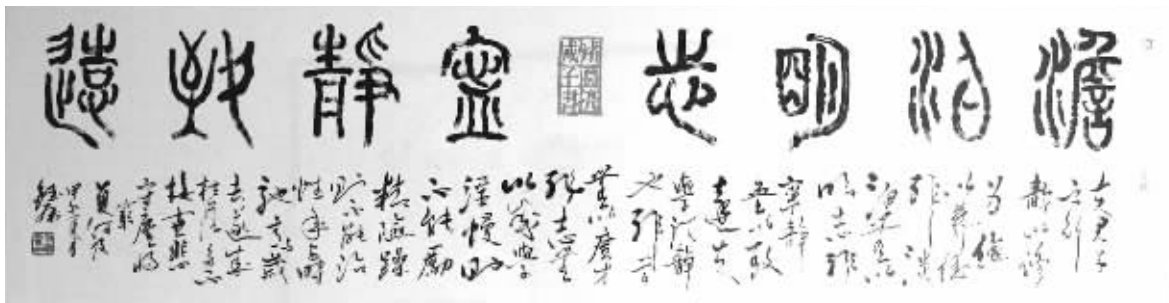 澹泊明志寧靜致遠
夫君子
之行
靜以修
身儉
以養德
非澹
泊無以
明志非
寧靜
無以致
遠夫
學須靜
也非學
無以廣才
非志無
以成學
淫慢則
不能勵
精險躁
則不能治
性年與時
馳意與歲
去遂成
枯落多不
接世悲
守窮廬將
復何及